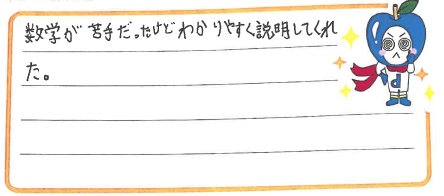 数学が苦手だ。だけどわかりやすく説明してくれ
た。
d